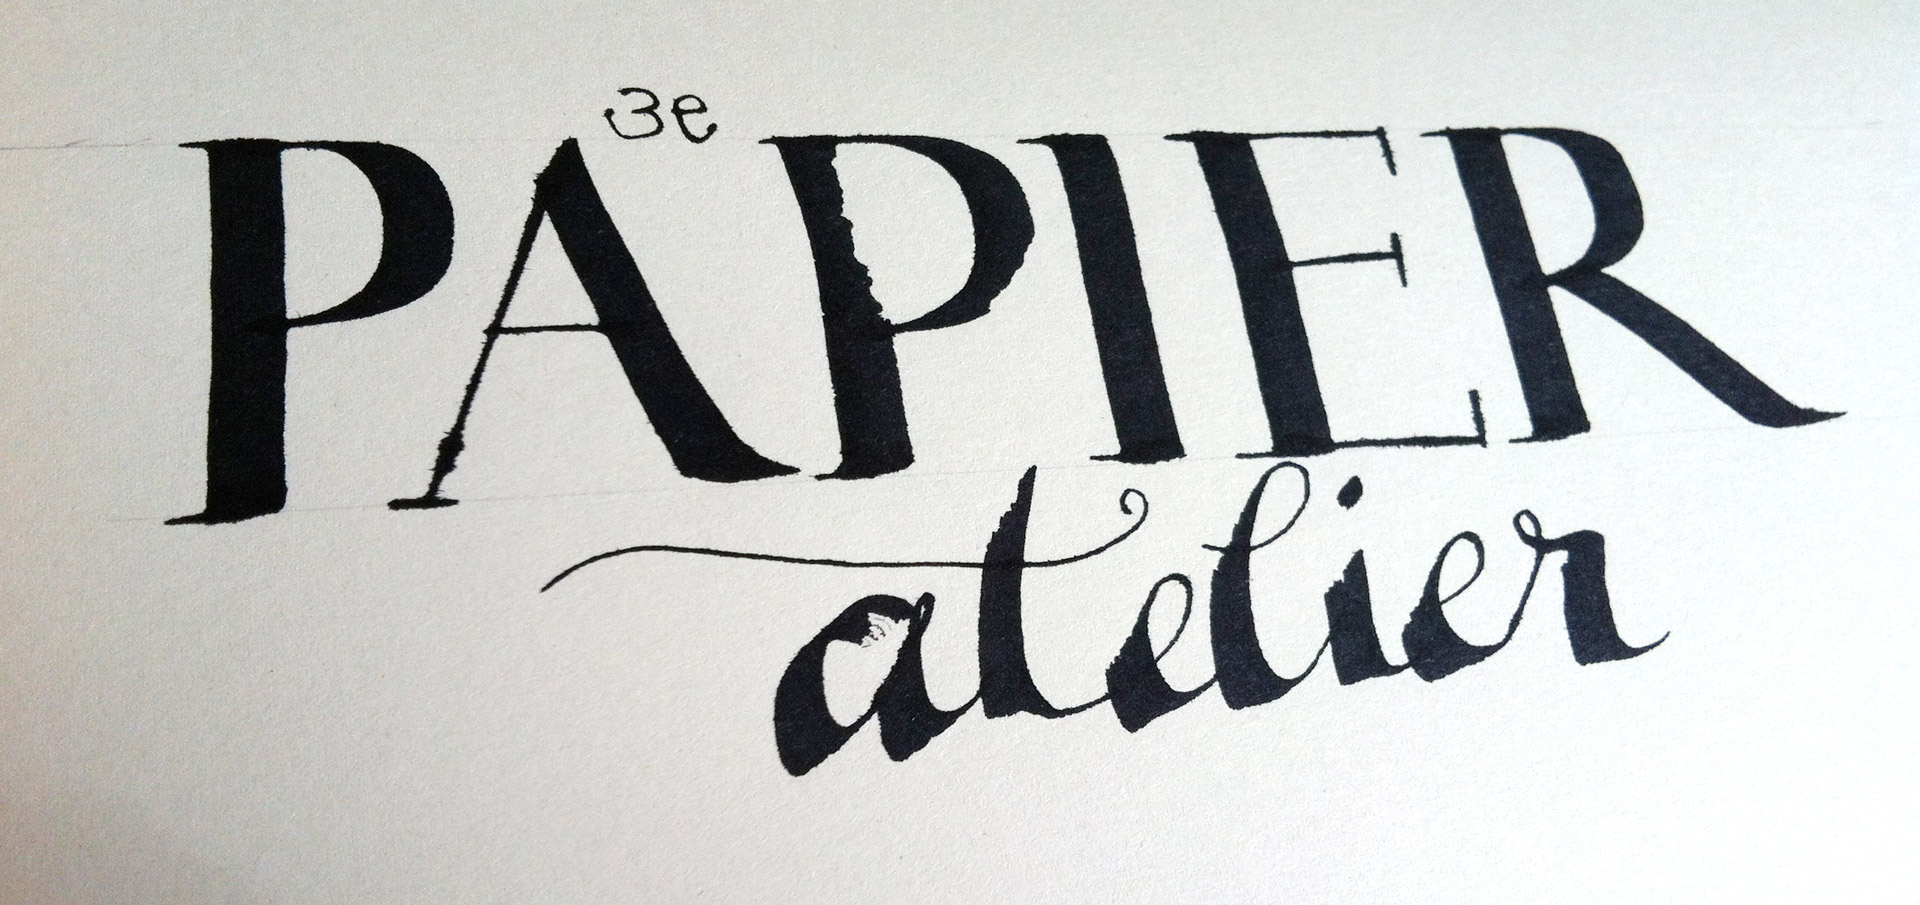 3e
PAPIER
atelier